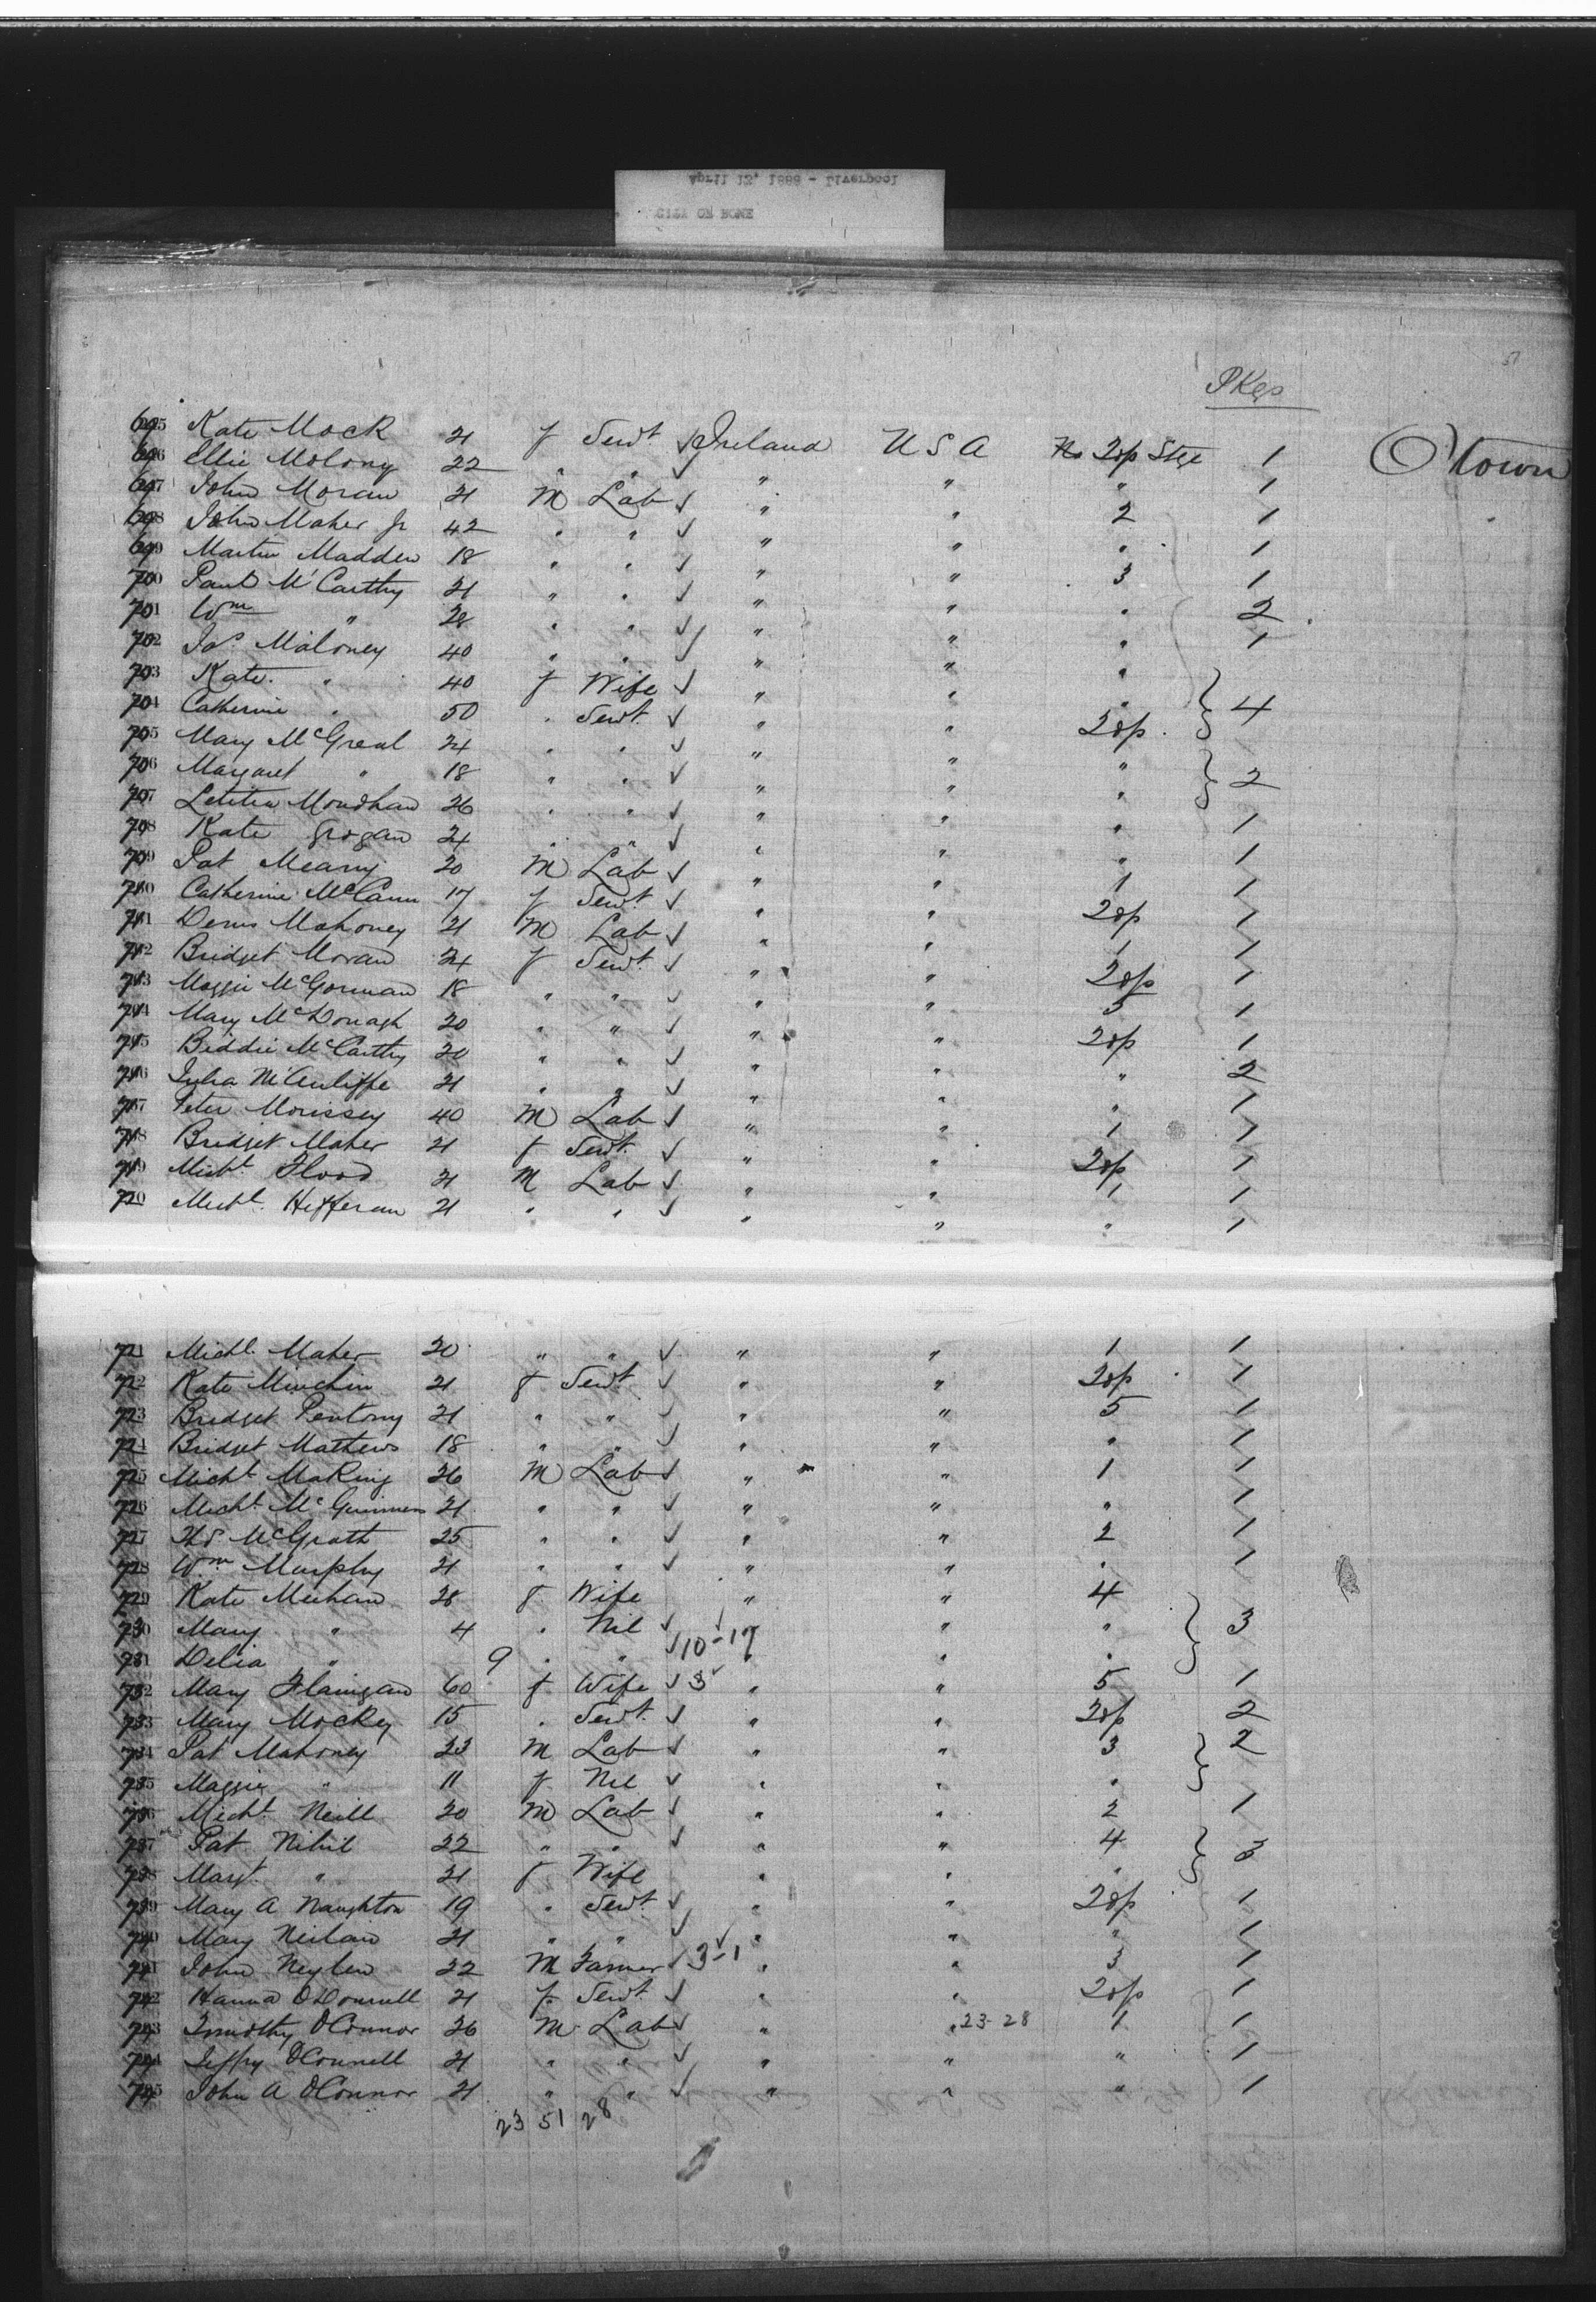 April 12, 1889 - Liverpool
CITY OF ROME
51
PKgs
695 Kate Mock 21 f Servt Ireland U S A No 2 op Stge 1 Q'town
696 Ellie Molony 22 " " " " " 1
697 John Moran 21 M Lab " " 2 1
698 John Maher Jr 42 " " " " " 1
699 Martin Madden 18 " " " " 3 1
700 Paul McCarthy 21 " " " " " 2
701 Wm " 28 " " " " " 1
702 Jas Maloney 40 " " " " "
703 Kate " 40 f Wife " " " 4
704 Catherine " 50 " Servt " " 2op
705 Mary McGreal 24 " " " " "
706 Margaret " 18 " " " " " 2
707 Letitia 26 " " " " " 1
708 Kate Grogan 24 " " " " " 1
709 Pat Meany 20 M Lab " " 1 1
710 Catherine McCann 17 f Servt " " 2op 1
711 Denis Mahoney 21 M Lab " " 1 1
712 Bridget Moran 24 f Servt " " 2op 1
713 Maggie McGorman 18 " " " " 5 1
714 Mary McDonagh 20 " " " " 2op 1
715 Biddie McCarthy 20 " " " " " 2
716 Julia McAuliffe 21 " " " " " 1
717 Peter Morissey 40 M Lab " " 1 1
718 Bridget Maher 21 f Servt " " 2op 1
719 Michl Flood 21 M Lab " " 1 1
720 Michl Heffernan 21 " " " " " 1
721 Michl Maher 20 " " " " 1 1
722 Kate Minchin 21 f Servt " " 2op 1
723 Bridget Pentony 21 " " " " 5 1
724 Bridget Mathews 18 " " " " " 1
725 Michl Making 26 M Lab " " 1 1
726 Michl McGuinness 21 " " " " " 1
727 Thos McGrath 25 " " " " 2 1
728 Wm Murphy 21 " " " " " 1
729 Kate Meehan 28 f Wife " " 4
730 Mary " 4 " Nil " " 3
731 Delia " 9 " " 10-17 " " "
732 Mary Flanigan 60 f Wife 3 " " 5 1
733 Mary Mockey 15 " Servt " " 2op 2
734 Pat Mahoney 23 M Lab " " 3 2
735 Maggie " 11 f Nil " " "
736 Michl Neill 20 M Lab " " 2 1
737 Pat Nihil 22 " " " " 4 3
738 Margt " 21 f Wife " " "
739 Mary A Naughton 19 " Servt " " 2op 1
740 Mary Neilan 21 " " " " " 1
741 John Neylen 22 M Farmer 3-1 " " 3 1
742 Hanna O'Donnell 21 f Servt " " 2op 1
743 Timothy O'Connor 26 M Lab " " 23-28 1 1
744 Jeffry O'Connell 21 " " " " " 1
745 John A O'Connor 21 " " " " " 1
23 51 28